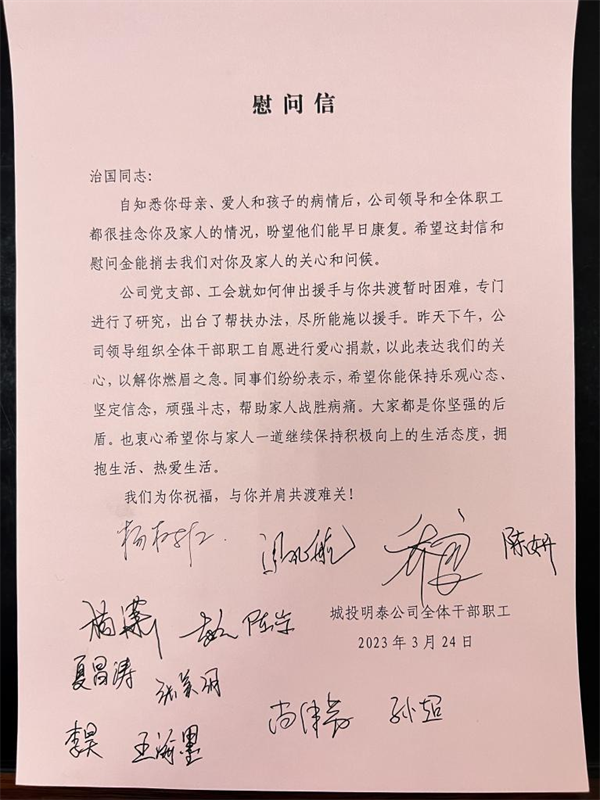 慰问信
治国同志：
自知悉你母亲、爱人和孩子的病情后，公司领导和全体职工
都很挂念你及家人的情况，盼望他们能早日康复。希望这封信和
慰问金能捎去我们对你及家人的关心和问候。
公司党支部、工会就如何伸出援手与你共渡暂时困难，专门
进行了研究，出台了帮扶办法，尽所能施以援手。昨天下午，公
司领导组织全体干部职工自愿进行爱心捐款，以此表达我们的关
心，以解你燃眉之急。同事们纷纷表示，希望你能保持乐观心态、
坚定信念，顽强斗志，帮助家人战胜病痛。大家都是你坚强的后
盾。也衷心希望你与家人一道继续保持积极向上的生活态度，拥
抱生活、热爱生活。
我们为你祝福，与你并肩共渡难关！
陈妍
城投明泰公司全体干部职工
2023年3月24日
杨潇
夏昌涛
孙超
李昊 王瀚墨